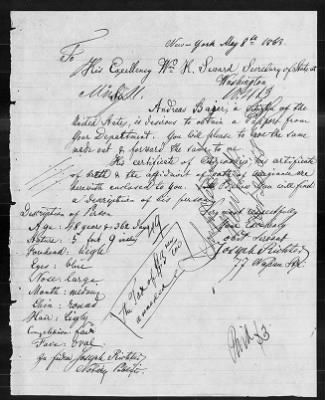 New-York May 8th 1863.
To
His Excellency Wm H. Seward Secretary of State at
Washington
Andreas Bauer, a citizen of the
United States, is desirous to obtain a Passport from
your Department. You will please to have the same
made out & forward the same to me.
His certificate of citizenship, his certificate
of birth & the affidavit of oath of allegiance are
herewith enclosed to you. Below you will find
a description of his person.
Very respectfully
Your Excellency
obdt servant
Joseph Richter
77 Nassau Str.
Description of Person
Age: 48 years &
Stature: 5 foot 9 inches
Forehead: high
Eyes: blue
Nose: large
Mouth: medium
Chin: round
Hair: light
Complexion fair
Face: oval
Joseph Richter
Notary Public
The Tax of $3 was
annexed
Paid $3